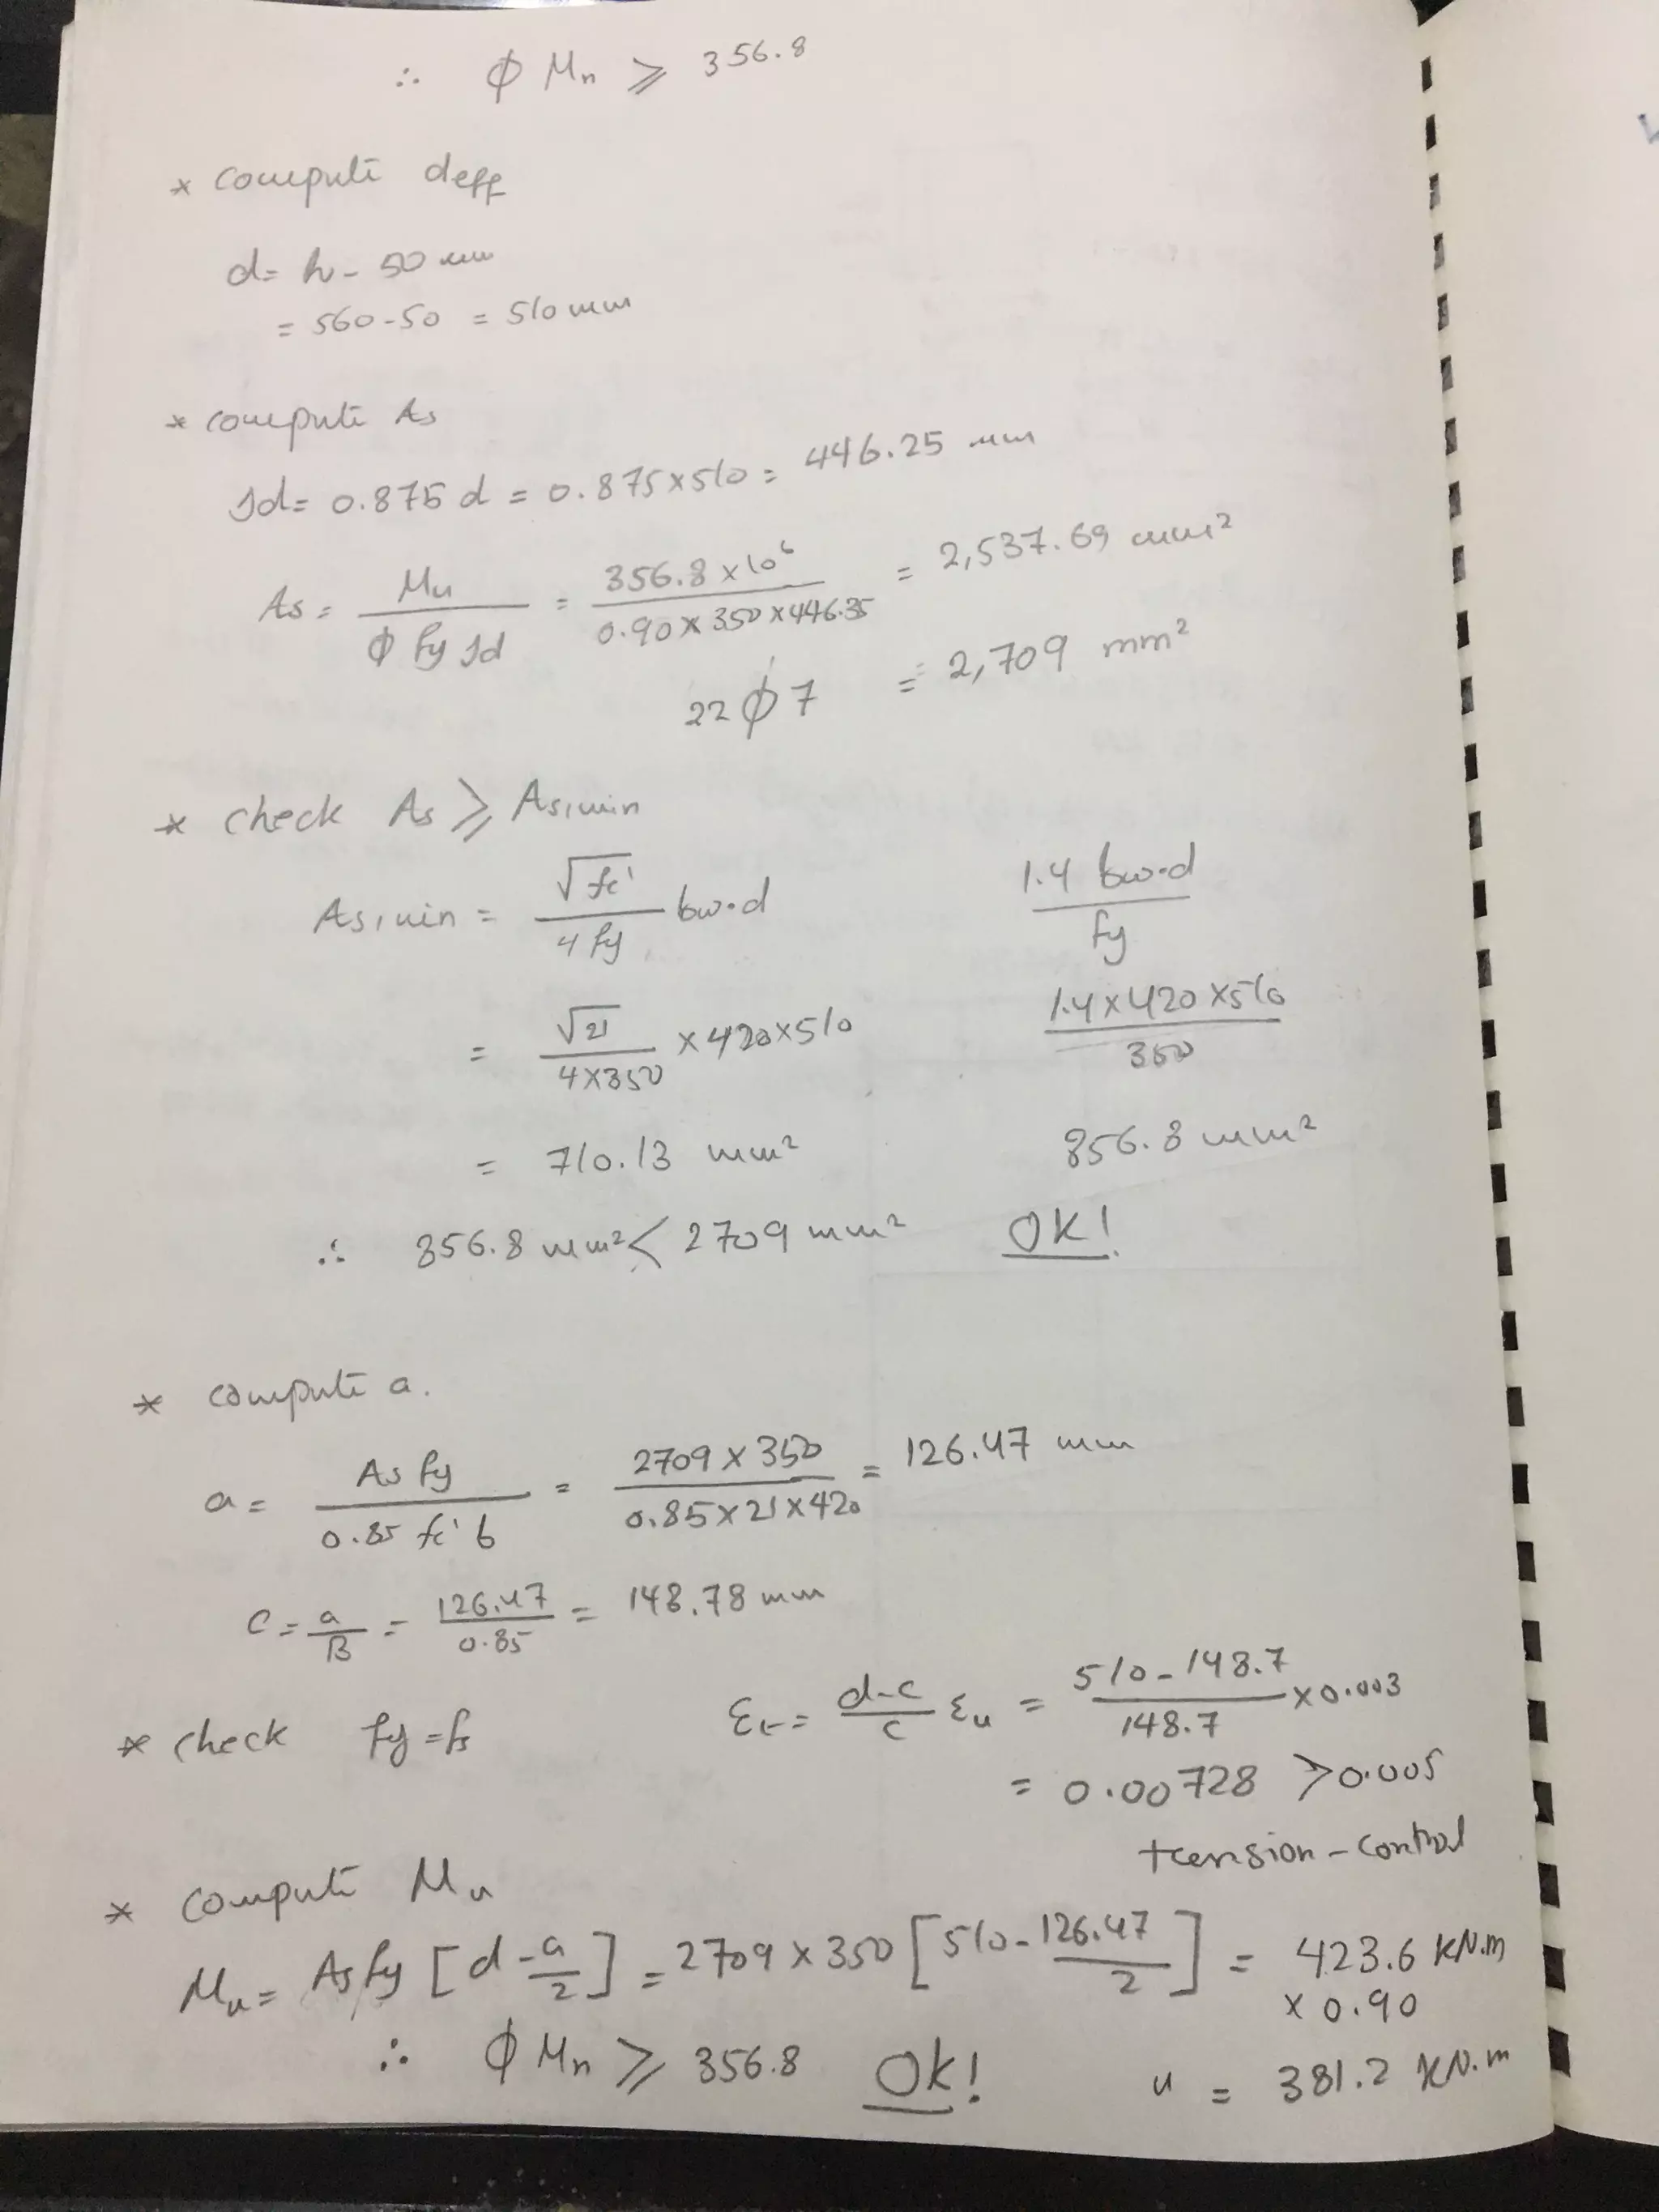 ∴ φ Mn ≥ 356.8
* compute deff
d = h - 50 mm
= 560-50 = 510 mm
* compute As
Jd = 0.875 d = 0.875×510 = 446.25 mm
As = Mu / φ fy Jd = 356.8×10^6 / 0.90×350×446.35 = 2,537.69 mm²
22 φ 7 = 2,709 mm²
* check As ≥ As,min
As,min = √fc' / 4fy bw.d    1.4 bw.d / fy
= √21 / 4×350 ×420×510    1.4×420×510 / 350
= 710.13 mm²    856.8 mm²
∴ 856.8 mm² < 2709 mm²    OK!
* compute a.
a = As fy / 0.85 fc' b = 2709×350 / 0.85×21×420 = 126.47 mm
c = a/B = 126.47 / 0.85 = 148.78 mm
* check fy = fs    Et = d-c / c Eu = 510-148.7 / 148.7 ×0.003
= 0.00728 > 0.005
tension-control
* compute Mu
Mu = As fy [d - a/2] = 2709×350 [510 - 126.47 / 2] = 423.6 KN.m
× 0.90
∴ φ Mn ≥ 356.8 OK!    u = 381.2 KN.m